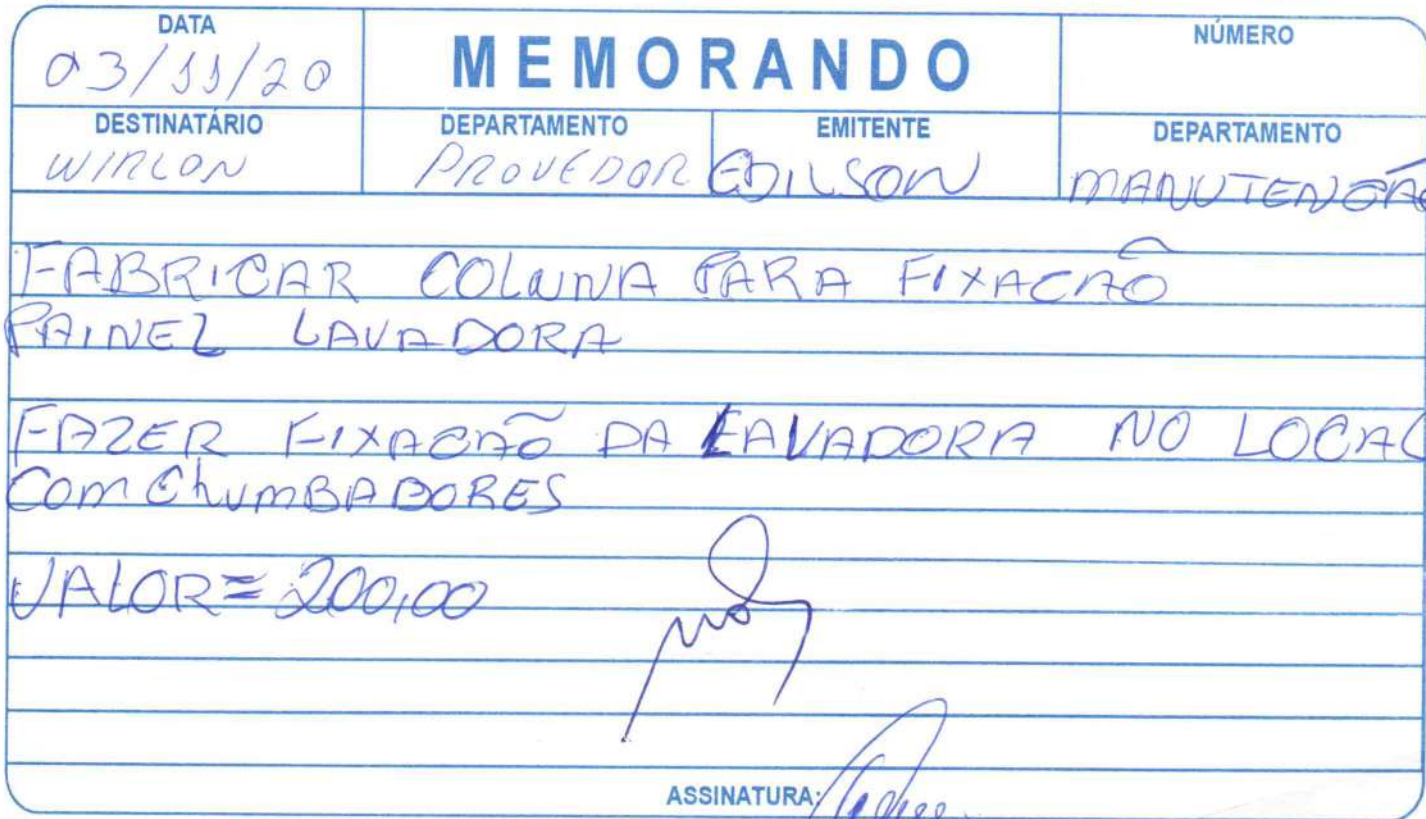 DATA
03/11/20
MEMORANDO
NÚMERO
DESTINATÁRIO
WIRLON
DEPARTAMENTO
PROVEDOR
EMITENTE
EDILSON
DEPARTAMENTO
MANUTENÇÃO
FABRICAR COLUNA PARA FIXACÃO
PAINEL LAVADORA
FAZER FIXACÃO DA LAVADORA NO LOCAL
COM ChUMBADORES
VALOR = 200,00
ASSINATURA: